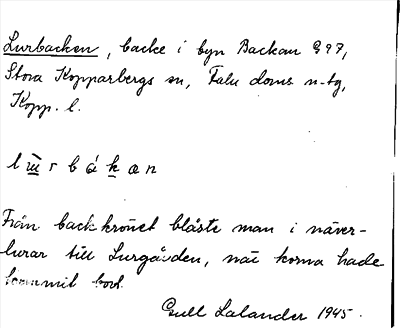 Lurbacken, backe i byn Backan 997,
Stora Kopparbergs sn, Falu doms. n-tg,
Kopp. l.
l ɯ r b á k æ n
Från backkrönet blåste man i näver-
lurar till Lurgården, när korna hade
kommit bort.
Gull Lalander 1945.